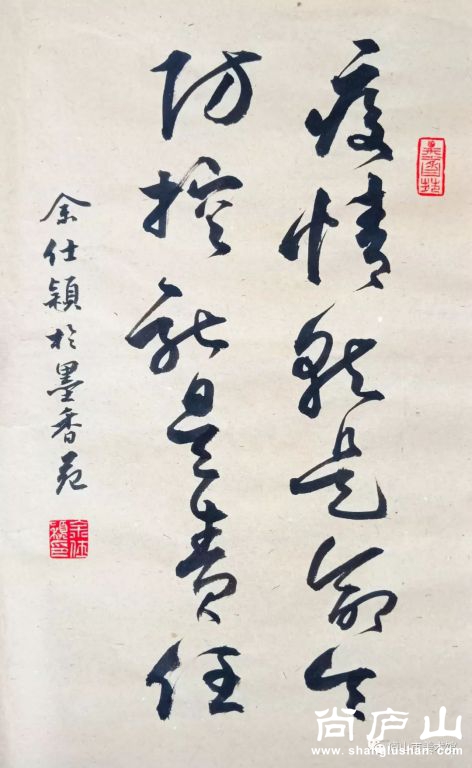 疫情就是命令
防控就是责任
余仕颖於墨香苑
余仕颖印
尚庐山
www.shanglushan.com